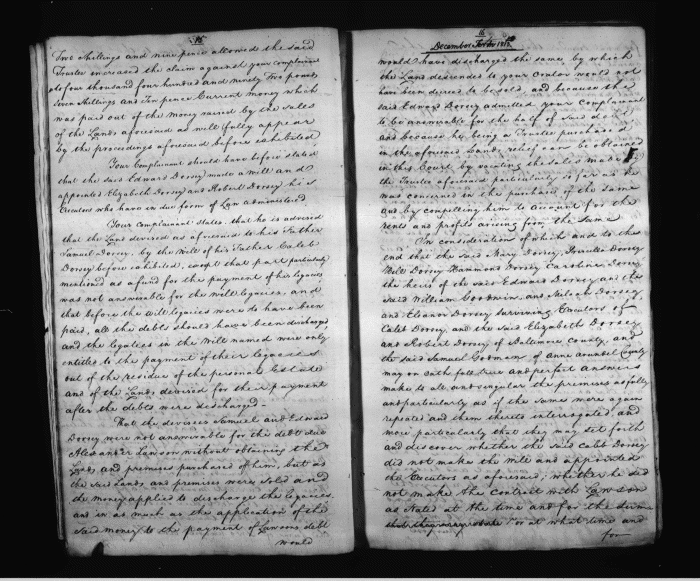 15
Two Shillings and nine pence allowed the said
Trustee increased the claim against your complainant
to four thousand four hundred and ninety Two pounds
Seven Shillings and Ten pence Current money which
was paid out of the money raised by the sales
of the Lands aforesaid as will fully appear
by the proceedings aforesaid before exhibited,
Your Complainant should have before stated
that the said Edward Dorsey made a will and
appointed Elizabeth Dorsey and Robert Dorsey his
Executors who have in due form of Law administered.
Your Complainant states, that he is advised
that the Land devised as aforesaid to his Father
Samuel Dorsey, by the Will of his Father Caleb
Dorsey before exhibited, except that part particularly
mentioned as a fund for the payment of his legacies
was not answerable for the will legacies, and
that before the will legacies were to have been
paid, all the debts should have been discharged,
and the legatees in the Will named were only
entitled to the payment of their legacies
out of the residue of the personal Estate
and of the Lands devised for their payment
after the debts were discharged.
That the devisees Samuel and Edward
Dorsey were not answerable for the debt due
Alexander Lawson without obtaining the
Lands and premises purchased of him, but as
the said Lands and premises were sold and
the money applied to discharge the legacies
and in as much as the application of the
said money, to the payment of Lawsons debt
would
16
December Term 1812
would have discharged the same by which
the Land descended to your orator would not
have been decreed to be sold, and because the
said Edward Dorsey admitted your Complainant
to be answerable for the half of said debt
and because he being a Trustee purchased
in the aforesaid Lands, relief can be obtained
in this Court by vacating the sales made by
the Trustee aforesaid particularly so far as he
was concerned in the purchase of the same
and by compelling him to account for the
rents and profits arising from the same
In consideration of which and to this
end that the said Mary Dorsey, Priscilla Dorsey
Will Dorsey Hammond Dorsey Caroline Dorsey
the heirs of the said Edward Dorsey and the
said William Goodwin, and Milcah Dorsey,
and Eleanor Dorsey surviving Executors of
Caleb Dorsey, and the said Elizabeth Dorsey
and Robert Dorsey of Baltimore County, and
the said Samuel Godman, of Anne Arundel County
may on oath full true and perfect answers
make to all and singular the premises as fully
and particularly as if the same were again
repeated and them thereto interrogated, and
more particularly that they may set forth
and discover whether the said Caleb Dorsey
did not make the Will and appointed
the Executors as aforesaid; whether he did
not make the Contract with Lawson
as stated at the time and for the sums
or at what time and
for